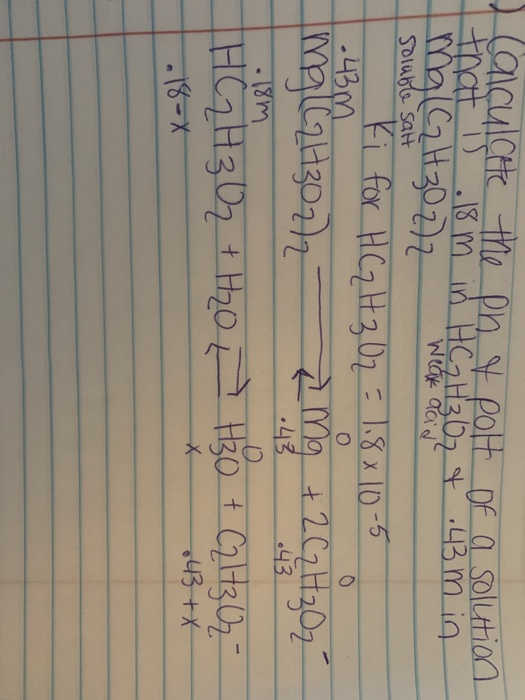 ) Calculate the pH & poH of a solution
that is .18m in HC2H3O2 & .43m in
weak acid
Mg(C2H3O2)2
soluble salt
Ki for HC2H3O2 = 1.8 x 10-5
.43m 0 0
Mg(C2H3O2)2 ⇌ Mg + 2C2H3O2-
.43 .43
.18m 0
HC2H3O2 + H2O ⇌ H3O + C2H3O2-
.18-x x .43+x